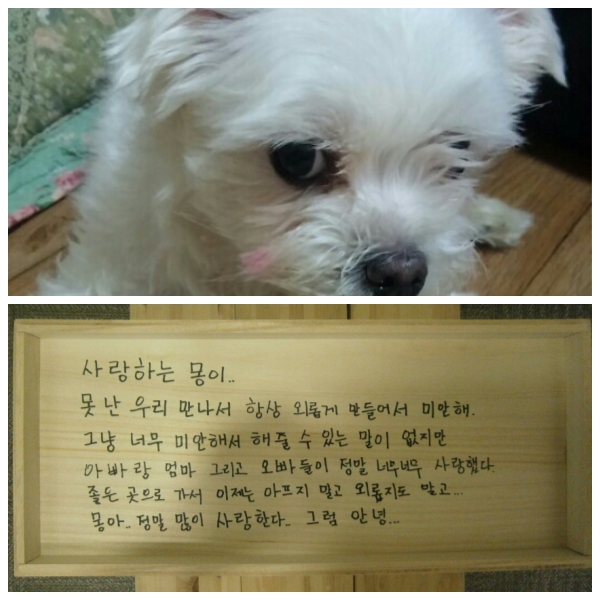 사랑하는 몽이..
못난 우리 만나서 항상 외롭게 만들어서 미안해.
그냥 너무 미안해서 해줄 수 있는 말이 없지만
아빠랑 엄마 그리고 오빠들이 정말 너무너무 사랑했다.
좋은 곳으로 가서 이제는 아프지 말고 외롭지도 말고...
몽아.. 정말 많이 사랑한다.. 그럼 안녕...